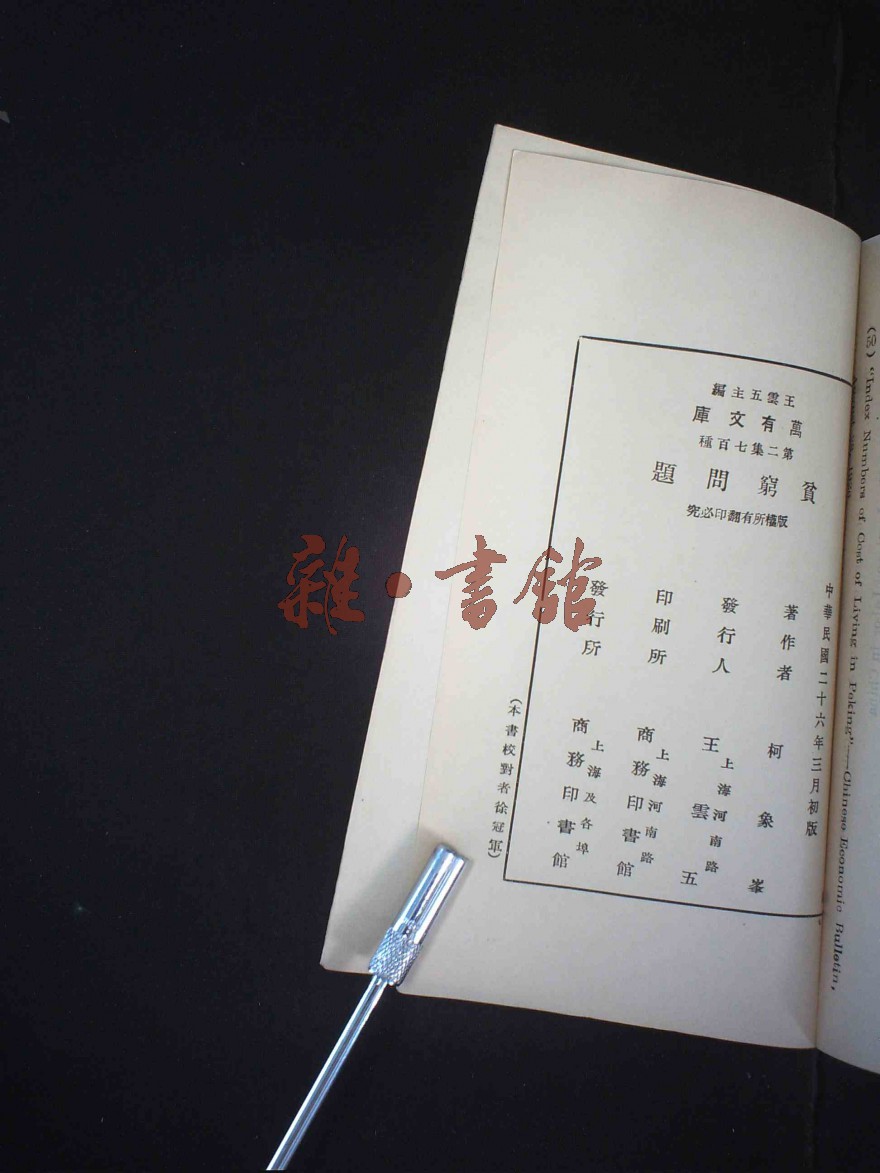 王雲五主編
萬有文庫
第二集七百種
貧窮問題
版權所有翻印必究
中華民國二十六年三月初版
著作者 柯象峯
發行人 王雲五
上海河南路
印刷所 商務印書館
上海河南路
發行所 商務印書館
上海及各埠
(本書校對者徐冠軍)
(50) "Index Numbers of Cost of Living in Peking"—Chinese Economic Bulletin,
雜·書館